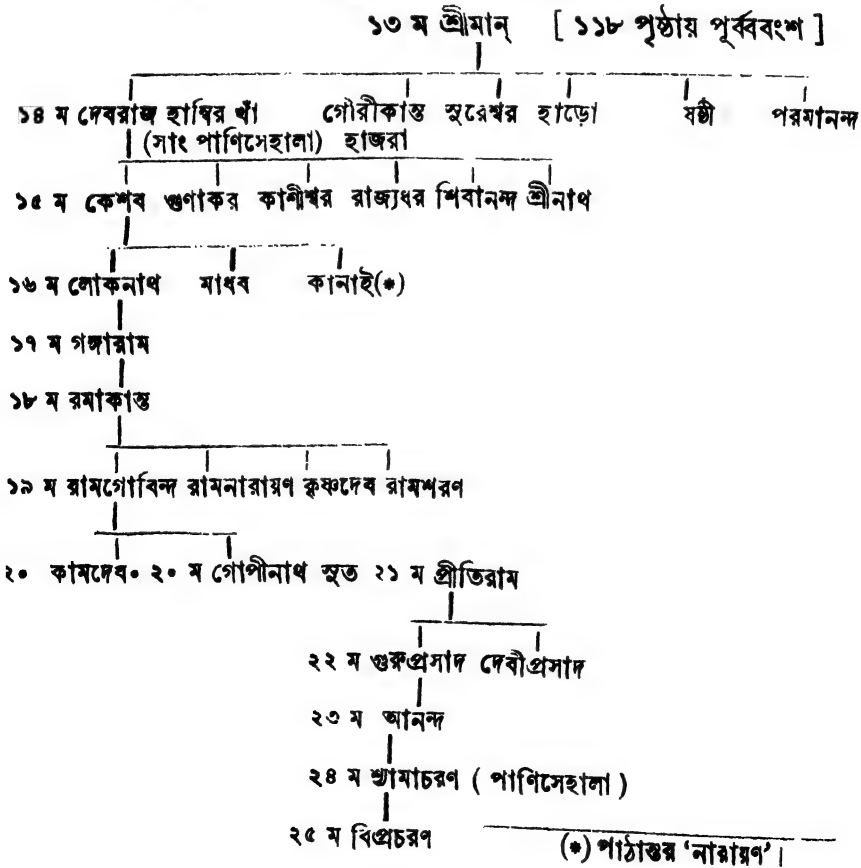 ১৩ ম শ্রীমান্ [ ১১৮ পৃষ্ঠায় পূর্ব্ববংশ ]
১৪ ম দেবরাজ হাম্বির খাঁ গৌরীকান্ত সুরেশ্বর হাড়ো ষষ্ঠী পরমানন্দ
(সাং পাণিসেহালা) হাজরা
১৫ ম কেশব গুণাকর কাশীশ্বর রাজ্যধর শিবানন্দ শ্রীনাথ
১৬ ম লোকনাথ মাধব কানাই(*)
১৭ ম গঙ্গারাম
১৮ ম রমাকান্ত
১৯ ম রামগোবিন্দ রামনারায়ণ কৃষ্ণদেব রামশরণ
২০ কামদেব• ২০ ম গোপীনাথ সুত ২১ ম প্রীতিরাম
২২ ম গুরুপ্রসাদ দেবীপ্রসাদ
২৩ ম আনন্দ
২৪ ম শ্যামাচরণ ( পাণিসেহালা )
২৫ ম বিপ্রচরণ
(*) পাঠান্তর ‘নারায়ণ’।